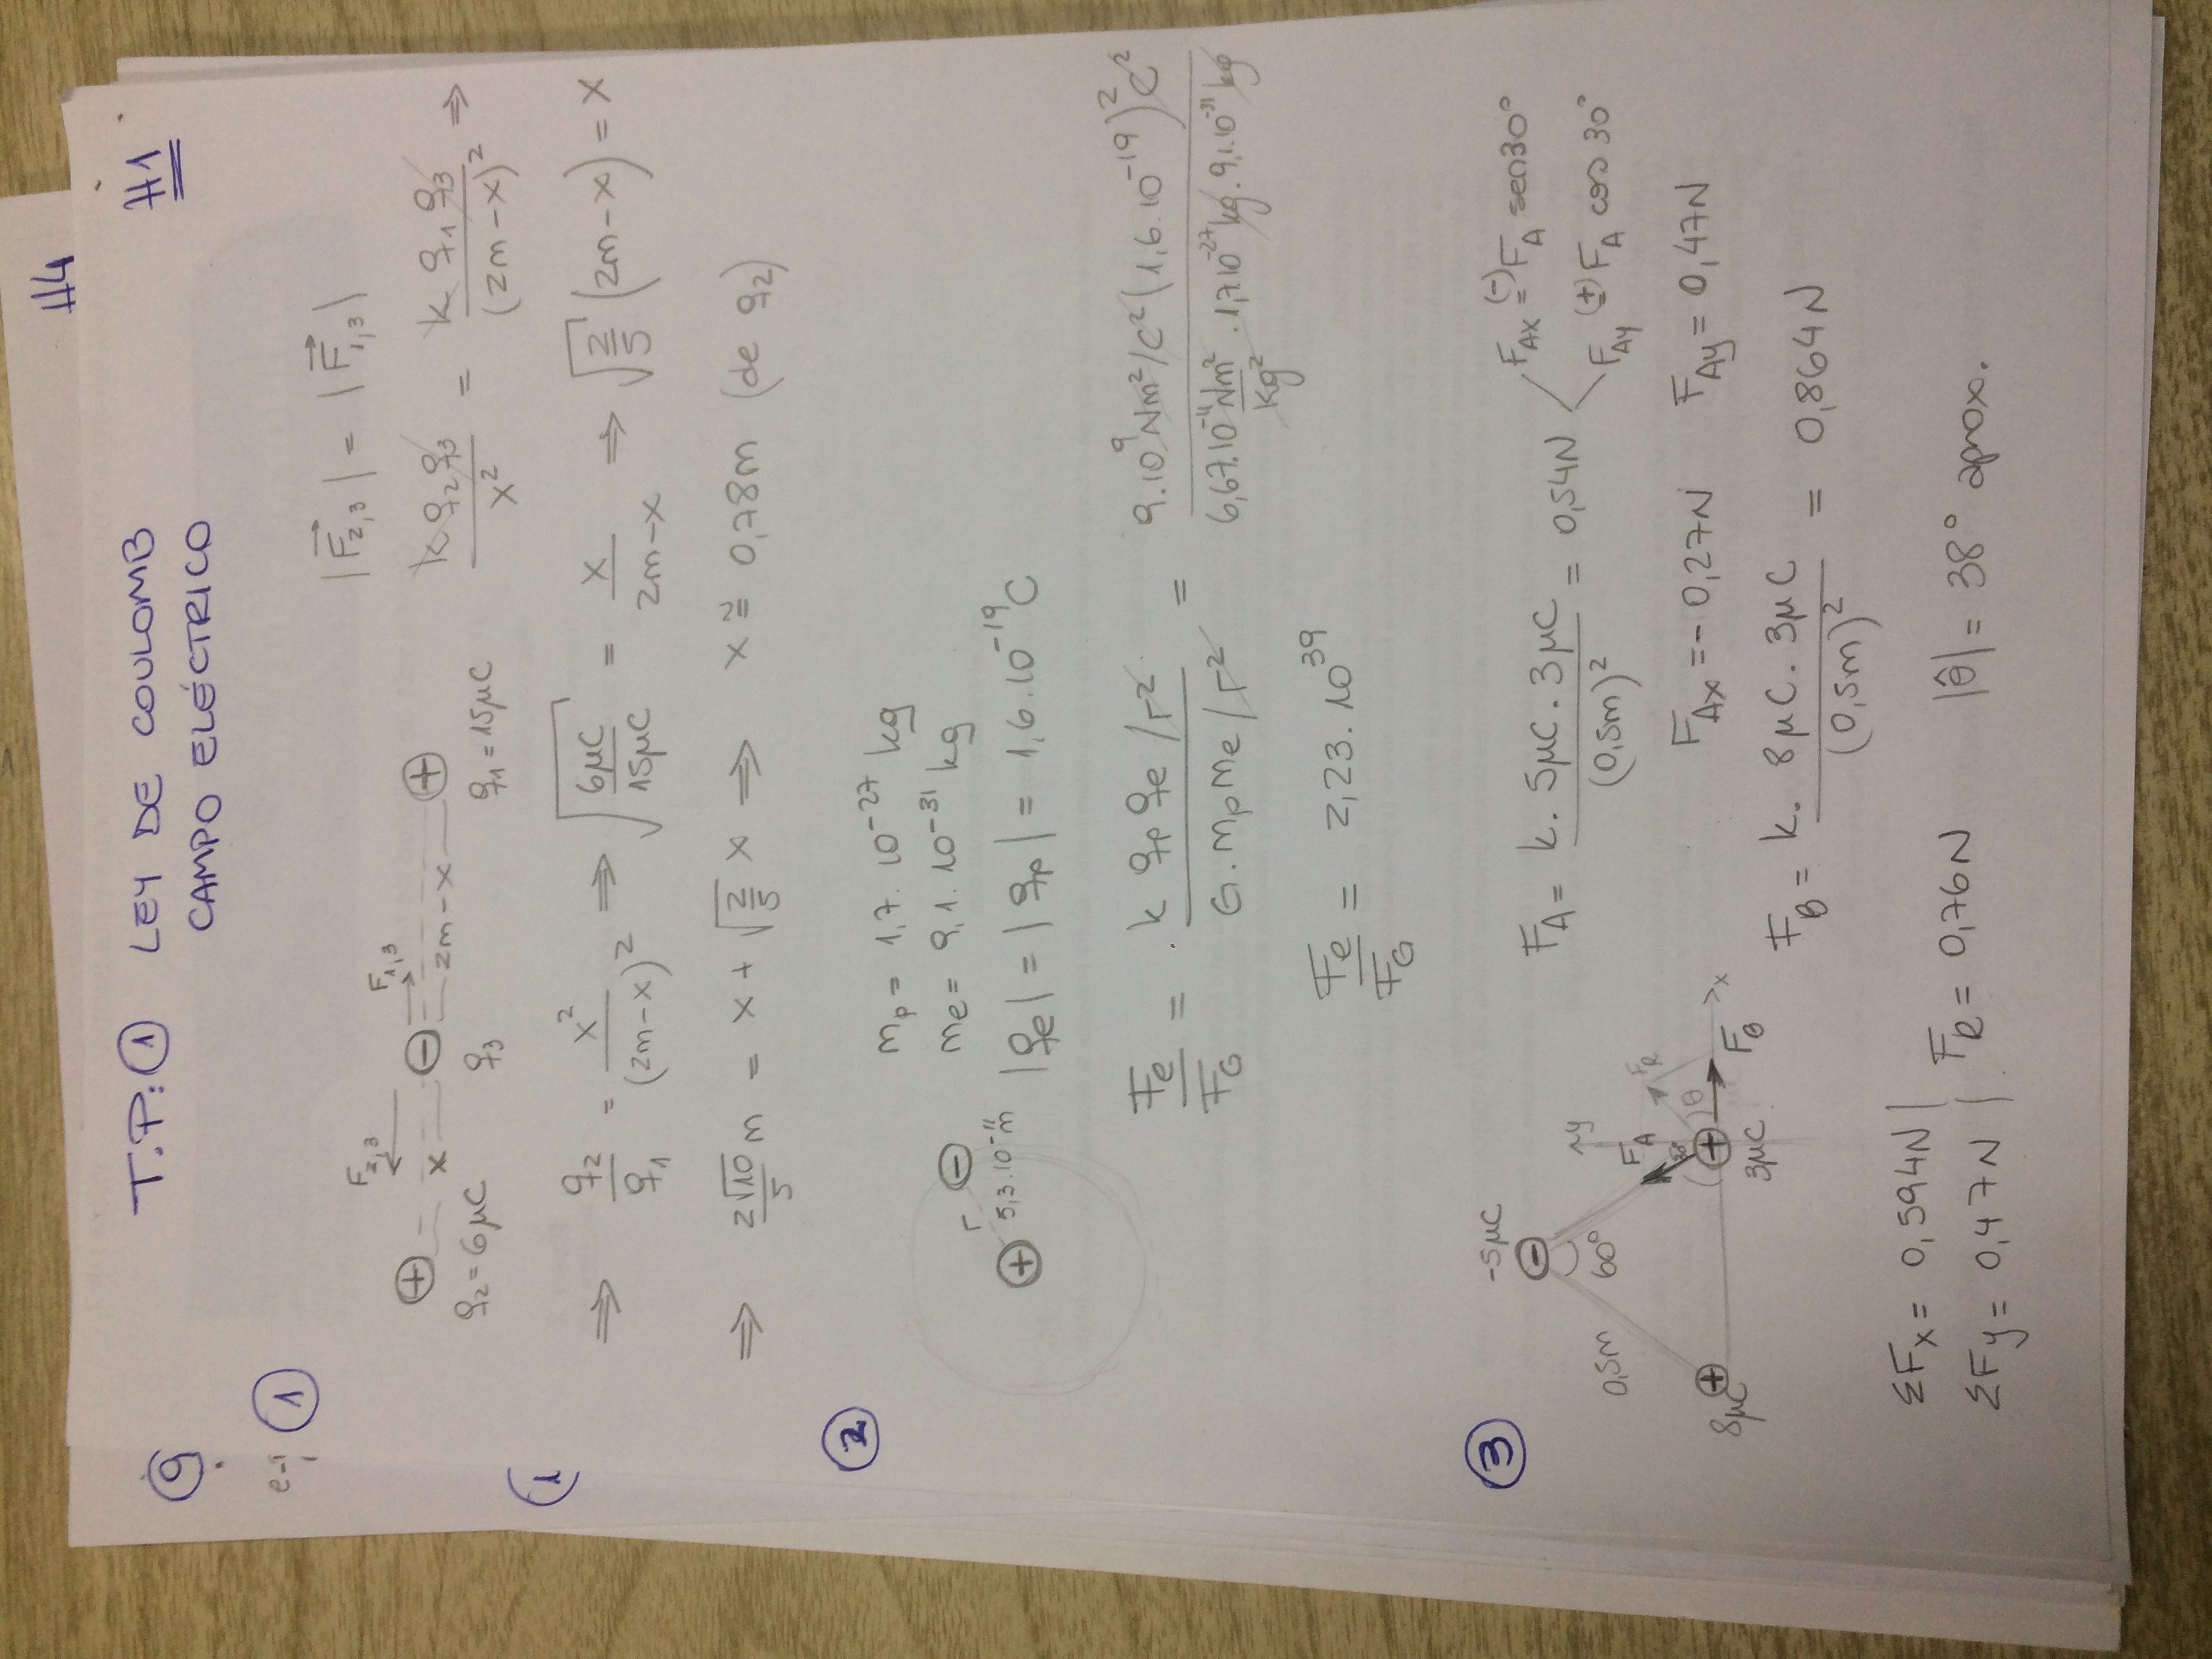 H4
T.P: ① LEY DE COULOMB H1
CAMPO ELÉCTRICO
⑨
e-
①
|F⃗2,3| = |F⃗1,3|
F2,3 F1,3
⊕ x ⊖ 2m-x ⊕
q2 = 6μC q3 q1 = 15μC
k q2 q3 / x² = k q1 q3 / (2m-x)² ⇒
(1
⇒ q2/q1 = x²/(2m-x)² ⇒ √(6μC/15μC) = x/(2m-x) ⇒ √(2/5) (2m-x) = x
⇒ 2√10/5 m = x + √(2/5) x ⇒ x ≅ 0,78m (de q2)
②
mp = 1,7. 10⁻²⁷ kg
me = 9,1. 10⁻³¹ kg
⊖ r ⊕ 5,3.10⁻¹¹ m
|qe| = |qp| = 1,6.10⁻¹⁹C
Fe/FG = (k qp qe /r²)/(G. mp me /r²) = (9.10⁹ Nm²/C² (1,6.10⁻¹⁹)² C²)/(6,67.10⁻¹¹ Nm²/kg² . 1,7.10⁻²⁷ kg. 9,1.10⁻³¹ kg)
Fe/FG = 2,23. 10³⁹
③
-5μC
⊖
0,5m 60°
y
FA FR
θ
8μC ⊕ ⊕ x
3μC FB
FA = k. 5μC. 3μC/(0,5m)² = 0,54N
FAx (-)= FA sen30°
FAy (+)= FA cos 30°
FAx = - 0,27N FAy = 0,47N
FB = k. 8μC. 3μC/(0,5m)² = 0,864N
ΣFx = 0,594N |
ΣFy = 0,47N | FR = 0,76N |θ̂| = 38° aprox.